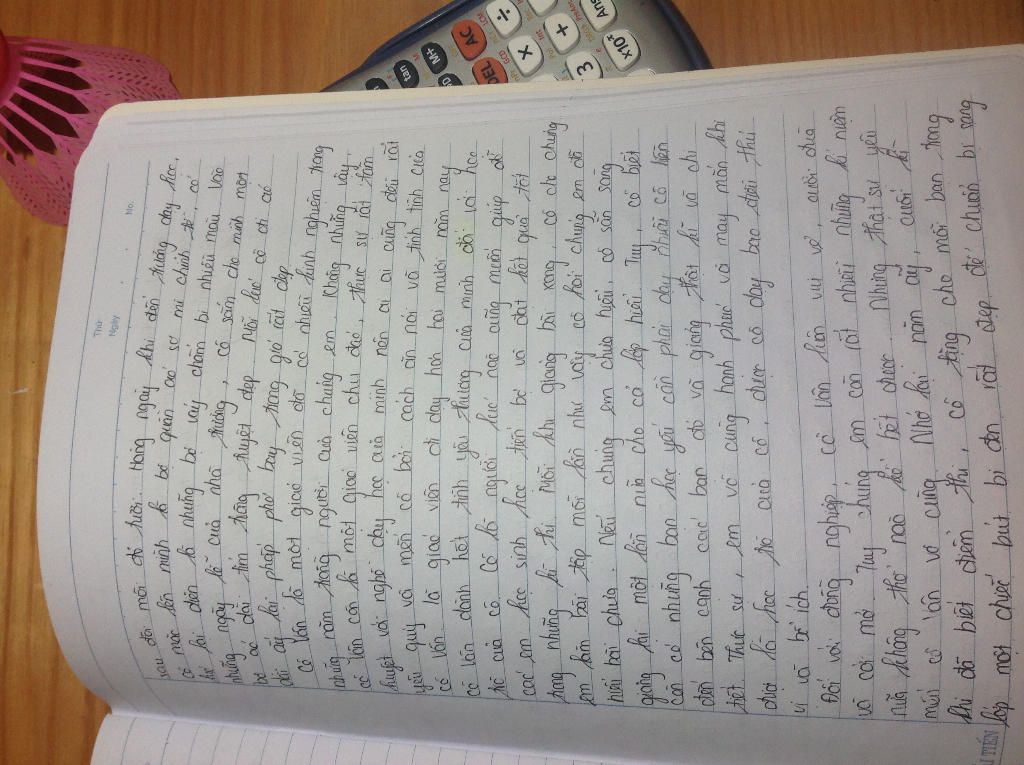 Thứ
Ngày
No.
sau đôi môi đỏ tươi. Hàng ngày khi đến trường dạy học,
cô mặc lên mình bộ quần áo sơ mi chỉnh tề, có
khi lại diện là những bộ váy chấm bi nhiều màu. Vào
những ngày lễ của nhà trường, cô sắm cho mình một
bộ áo dài tím trông tuyệt đẹp. Mỗi lúc cô đi cô
đôi cứ lại phấp phơ bay trong gió rất đẹp.
Cô Vân là một giáo viên dạy có nhiều kinh nghiệm trong
những năm trong người của chúng em. Không những vậy,
cô Vân còn là một giáo viên chu đáo, thực sự rất tâm
huyết với nghề dạy học của mình nên ai ai cũng đều rất
yêu quý và mến cô bởi cách ăn nói và tính tình của
cô Vân là giáo viên đi dạy hơn hai mươi năm nay
cô Vân dành hết tình yêu thương của mình đối với học
trò của cô. Cô là người lúc nào cũng muốn giúp đỡ
các em học sinh học tiến bộ và đạt kết quả tốt
trong những kì thi. Mỗi khi giảng bài xong, cô cho chúng
em làm bài tập mỗi lần như vậy cô hỏi chúng em đã
hiểu bài chưa. Nếu chúng em chưa hiểu, cô sẵn sàng
giảng lại một lần nữa cho cả lớp hiểu. Tuy, có biết
còn có những bạn học yếu cần phải dạy thêm cô liền
đến bên cạnh các bạn đó và giảng thật kĩ và chi
tiết. Thực sự, em vô cùng hạnh phúc và may mắn khi
được là học trò của cô, được cô dạy bao điều thú
vị và bổ ích.
Đối với đồng nghiệp, cô Vân luôn vui vẻ, cười đùa
và cởi mở. Tuy chúng em còn rất nhiều những kỉ niệm
nữa không thể nào kể hết được. Nhưng thật sự yêu
mến cô Vân vô cùng. Nhớ lại năm ấy, cuối kì
khi đã biết điểm thi, cô tặng cho mỗi bạn trong
lớp một chiếc bút bi đen rất đẹp để chuẩn bị sang
TIẾN
AC
DEL
M+
tan
÷
×
+
3
Ans
×10ˣ
LCM
GCD